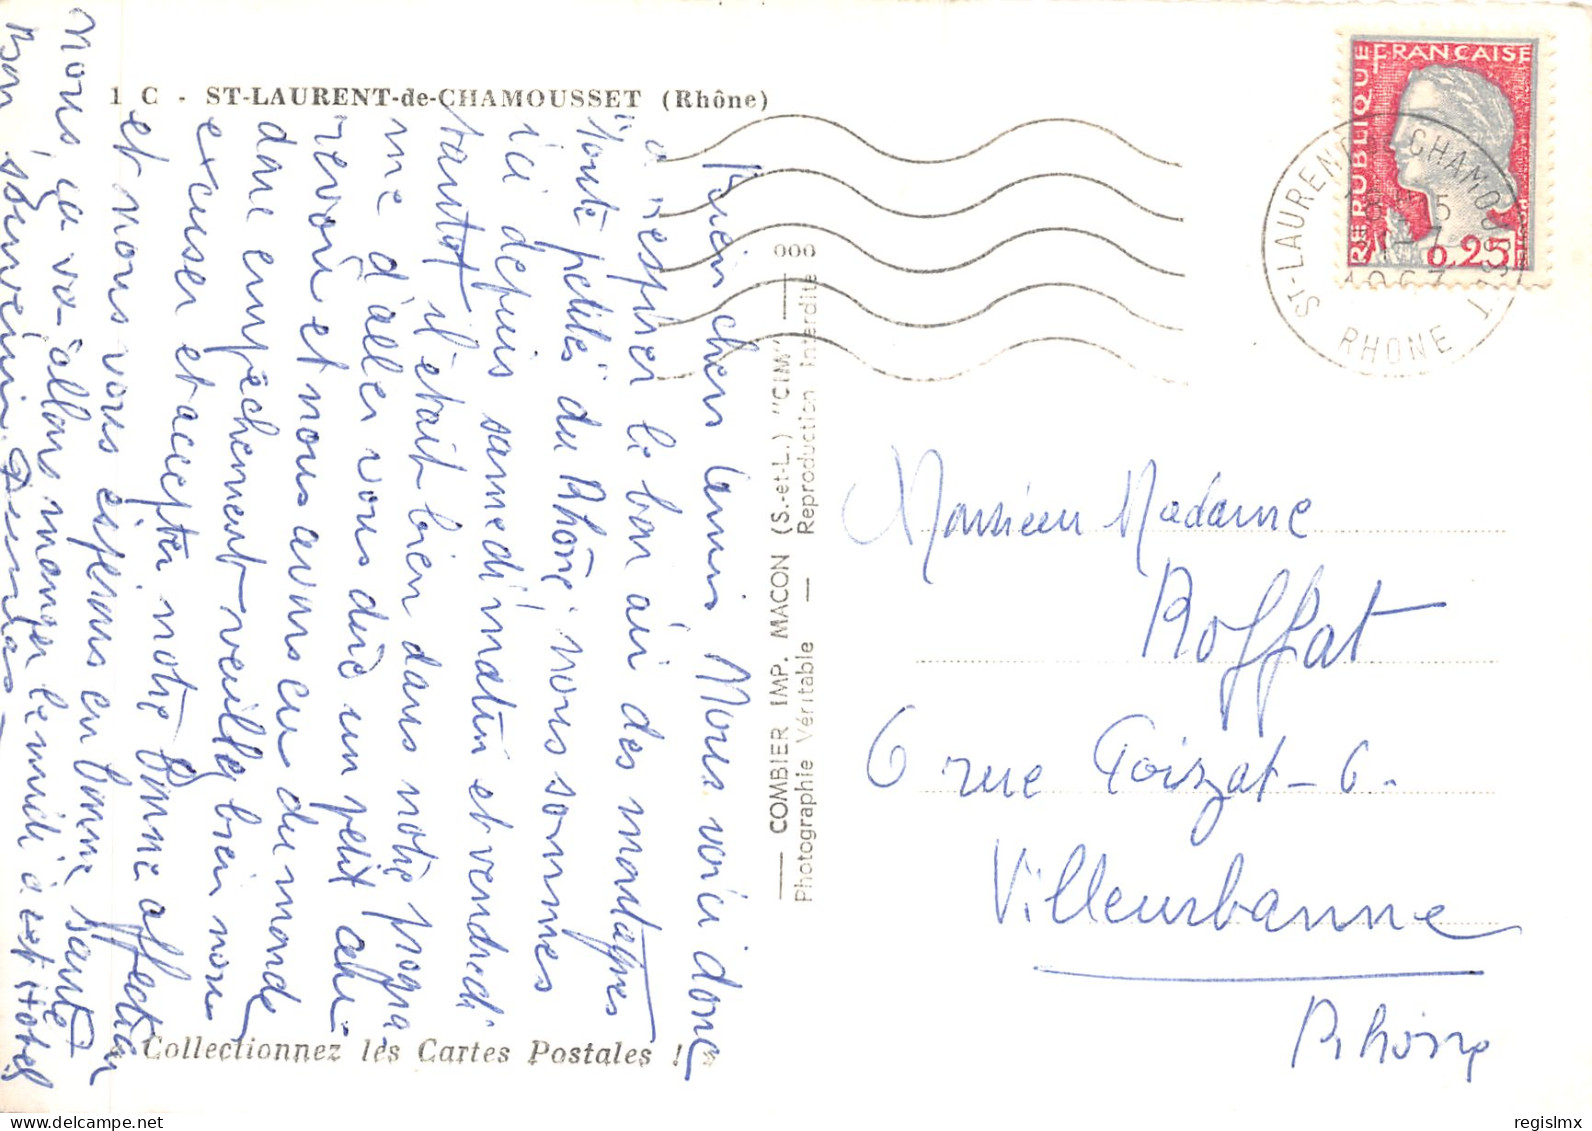 1 C - ST-LAURENT-de-CHAMOUSSET (Rhône)
Bien chers Amis, Nous voici donc
à respirer le bon air des montagnes
"toute petites du Rhône", nous sommes
ici depuis samedi matin et vendredi
tantôt il était bien dans notre progra
me d'aller vous dire un petit au
revoir et nous avons eu du monde
donc empêchement veuillez bien nous
excuser et accepter notre bonne affection
et nous vous espérons en bonne santé
nous ça va allons manger le midi à l'Hôtel
Bon souvenir
COMBIER IMP. MACON (S.-et-L.) "CIM"
Photographie Véritable — Reproduction Interdite
Collectionnez les Cartes Postales !
REPUBLIQUE FRANCAISE
POSTES
0,25
ST-LAURENT DE CHAMOUSSET
RHONE
Monsieur Madame
Roffat
6 rue Poizat - 6.
Villeurbanne
Rhône
regislmx